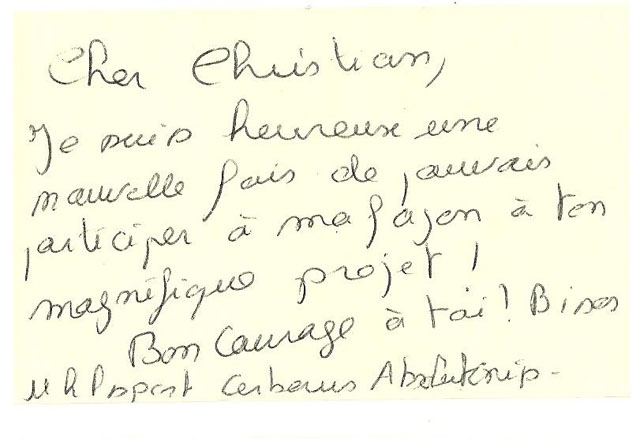 Cher Christian,
Je suis heureux une
nouvelle fois de pouvoir
participer à ma façon à ton
magnifique projet !
Bon Courage à toi ! Bises